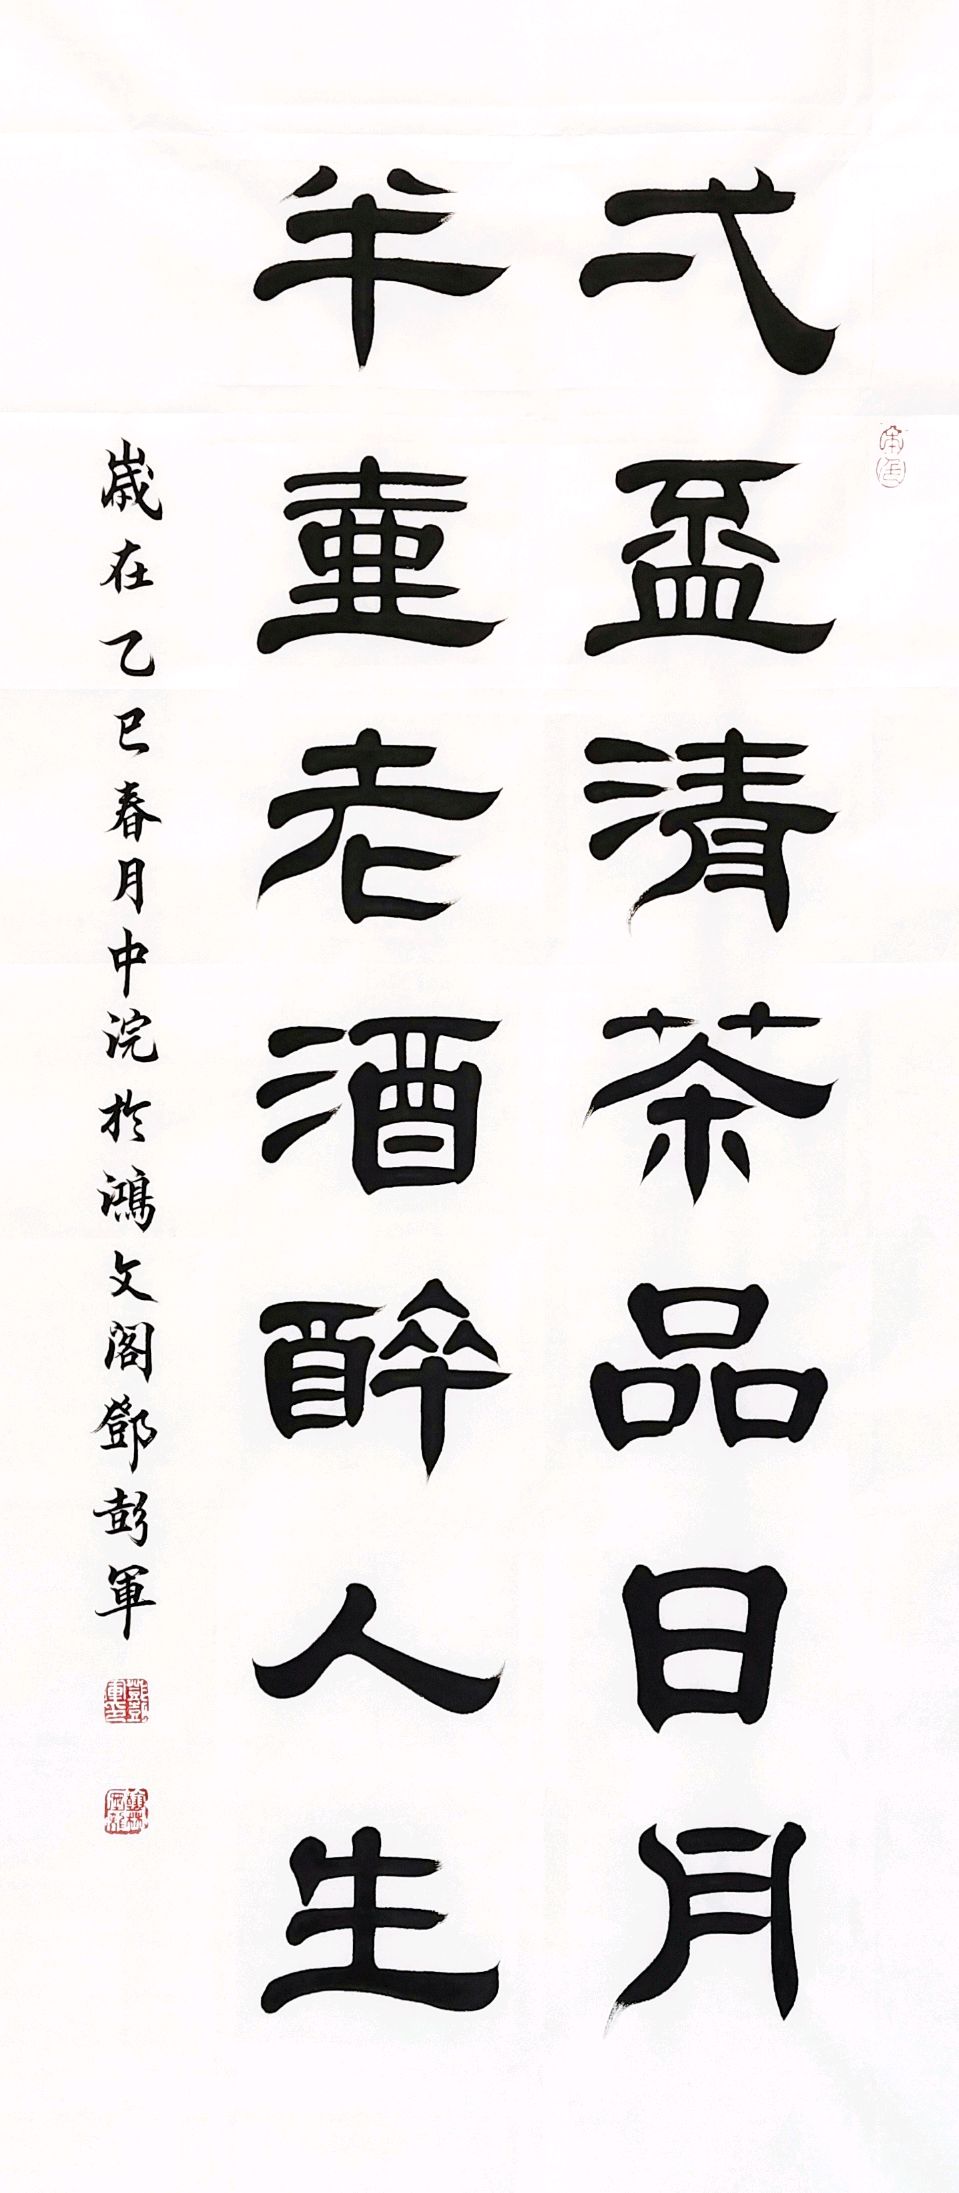 弌盃清茶品日月
半壷老酒醉人生
歲在乙巳春月中浣於鴻文閣鄧彭軍